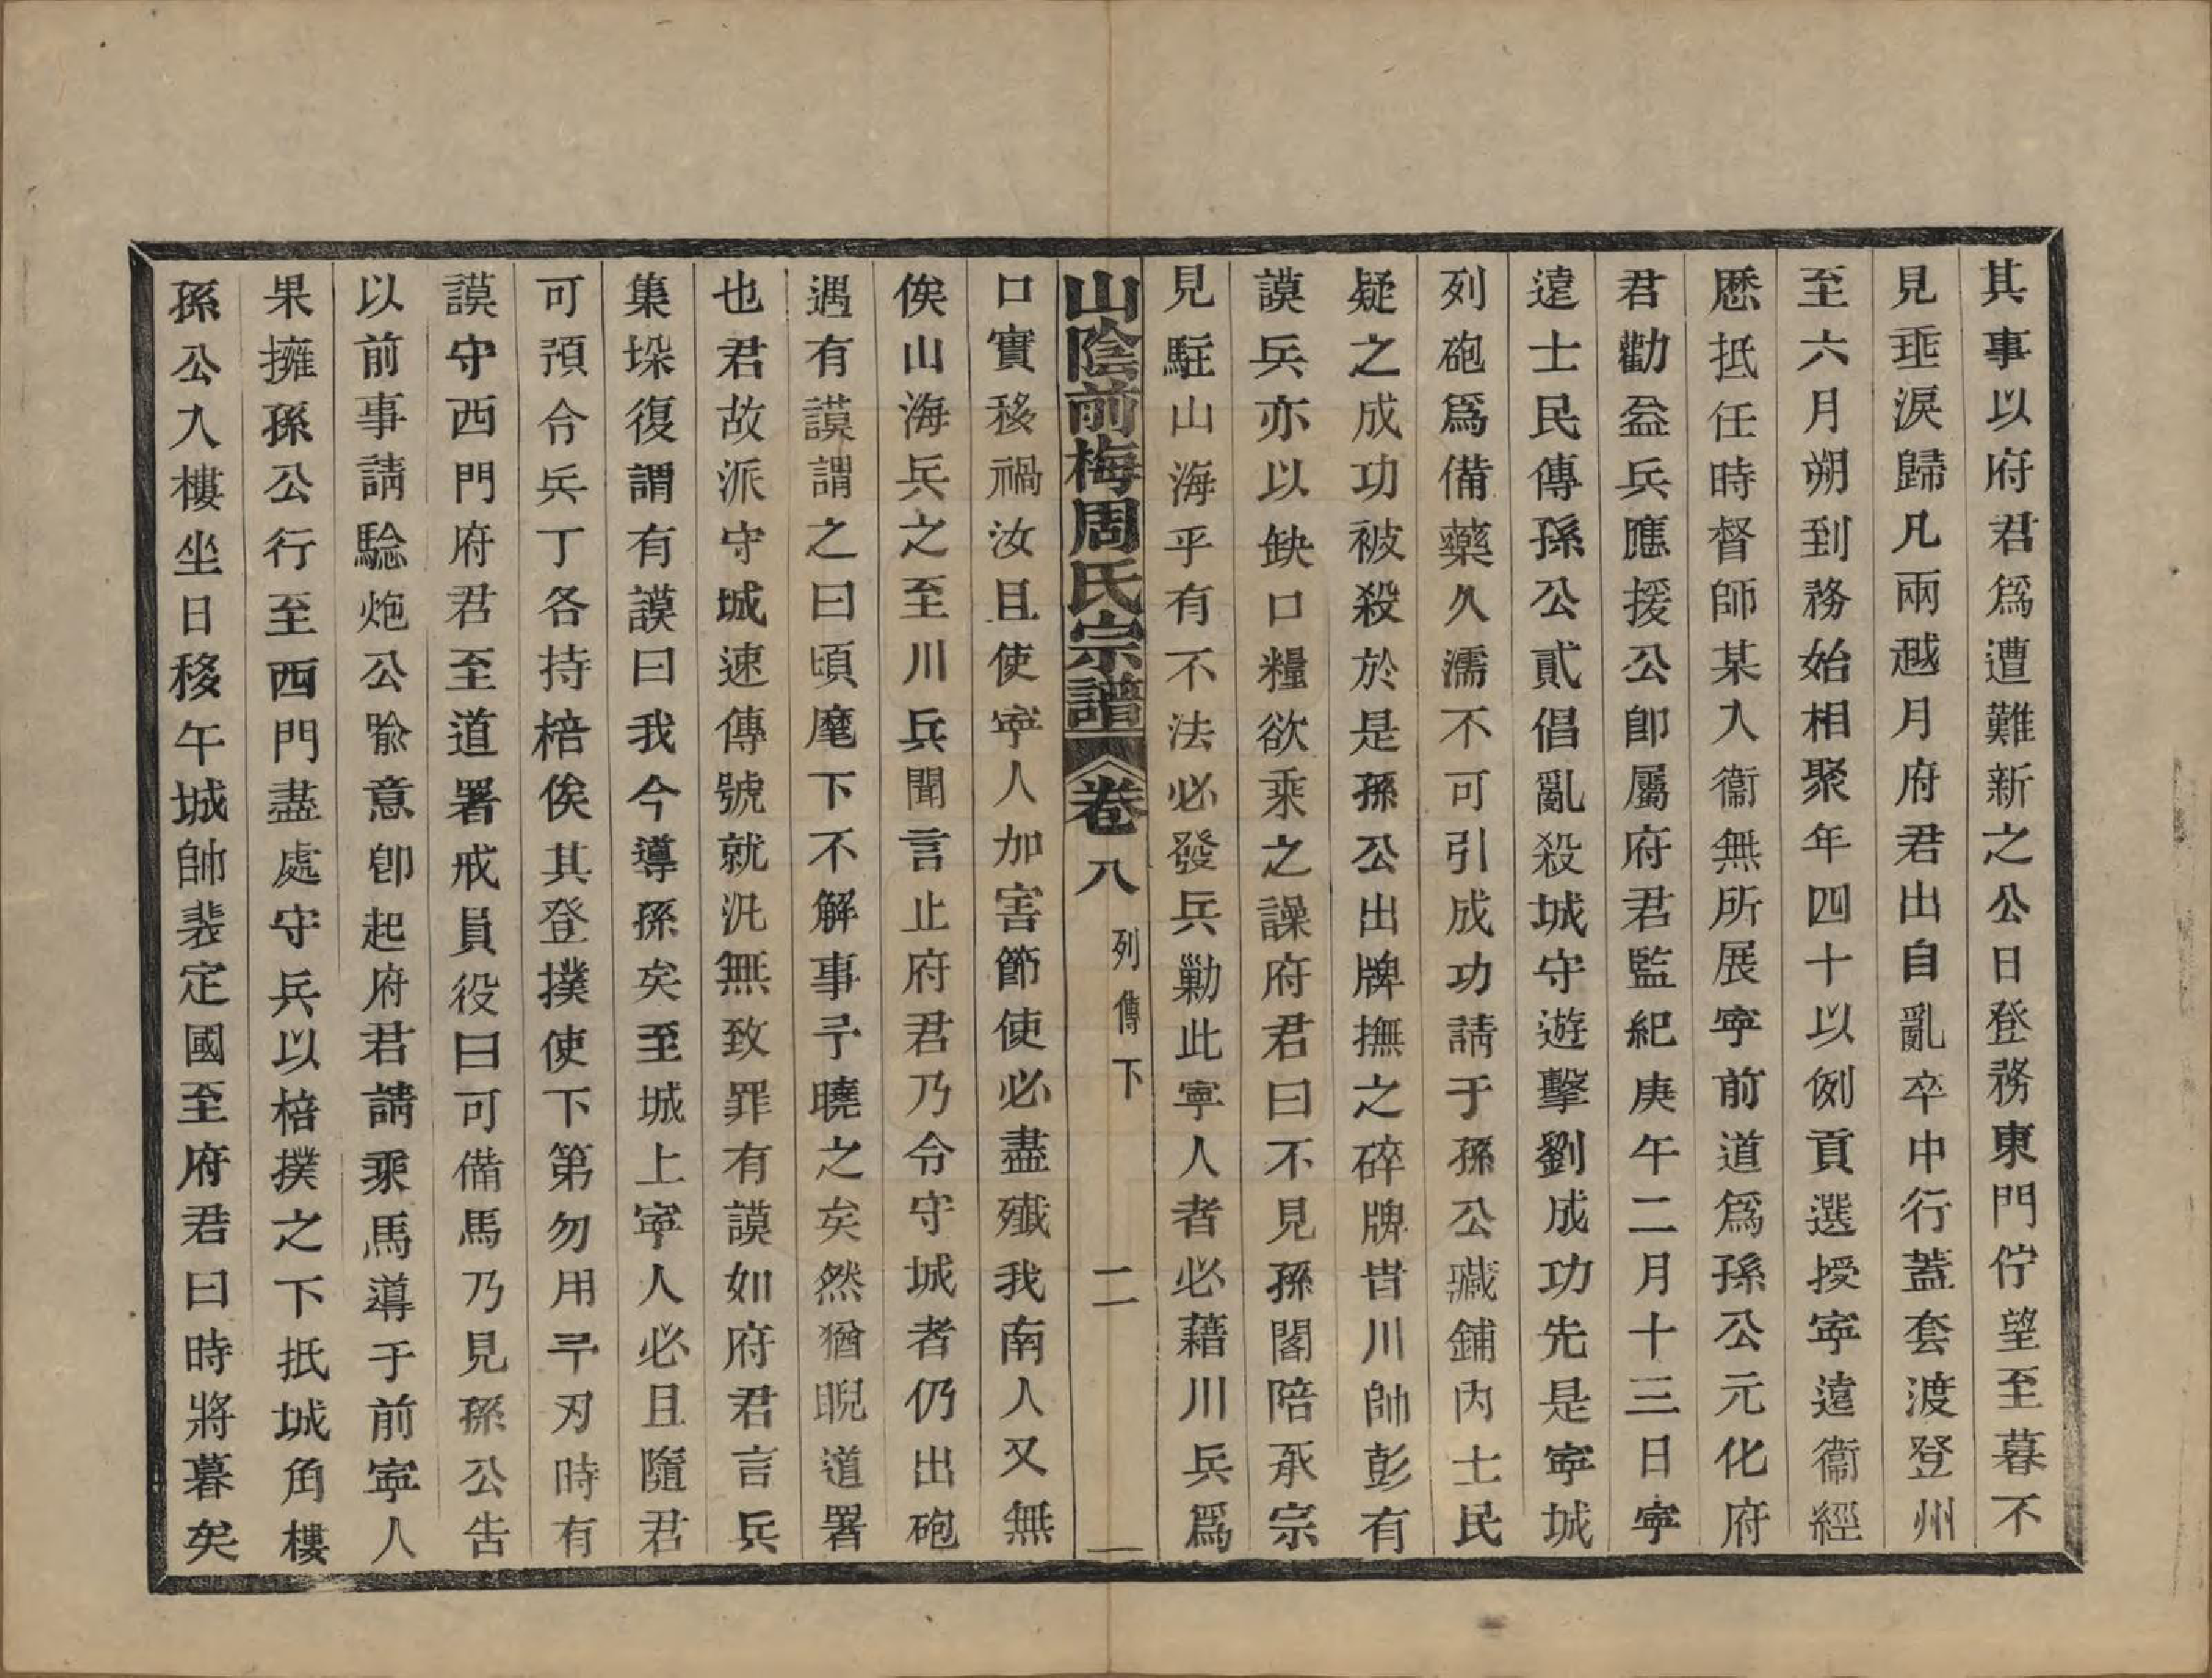 其事以府君爲遭難新之公日登務東門佇望至暮不
見垂淚歸凡兩越月府君出自亂卒中行蓋套渡登州
至六月朔到務始相聚年四十以例貢選授寧遠衞經
歷抵任時督師某入衞無所展寧前道爲孫公元化府
君勸益兵應援公卽屬府君監紀庚午二月十三日寧
遠士民傳孫公貳倡亂殺城守遊擊劉成功先是寧城
列砲爲備藥久濡不可引成功請于孫公藏鋪內士民
疑之成功被殺於是孫公出牌撫之碎牌旹川帥彭有
謨兵亦以缺口糧欲乘之譟府君曰不見孫閣陪承宗
見駐山海乎有不法必發兵勦此寧人者必藉川兵爲
山陰前梅周氏宗譜 卷八 列傳下 二
口實移禍汝且使寧人加害節使必盡殲我南人又無
俟山海兵之至川兵聞言止府君乃令守城者仍出砲
遇有謨謂之曰頃麾下不解事予曉之矣然猶睨道署
也君故派守城速傳號就汛無致罪有謨如府君言兵
集垛復謂有謨曰我今導孫矣至城上寧人必且隨君
可預令兵丁各持棓俟其登撲使下第勿用弓刃時有
謨守西門府君至道署戒員役曰可備馬乃見孫公告
以前事請驗炮公喻意卽起府君請乘馬導于前寧人
果擁孫公行至西門盡處守兵以棓撲之下抵城角樓
孫公入樓坐日移午城帥裴定國至府君曰時將暮矣